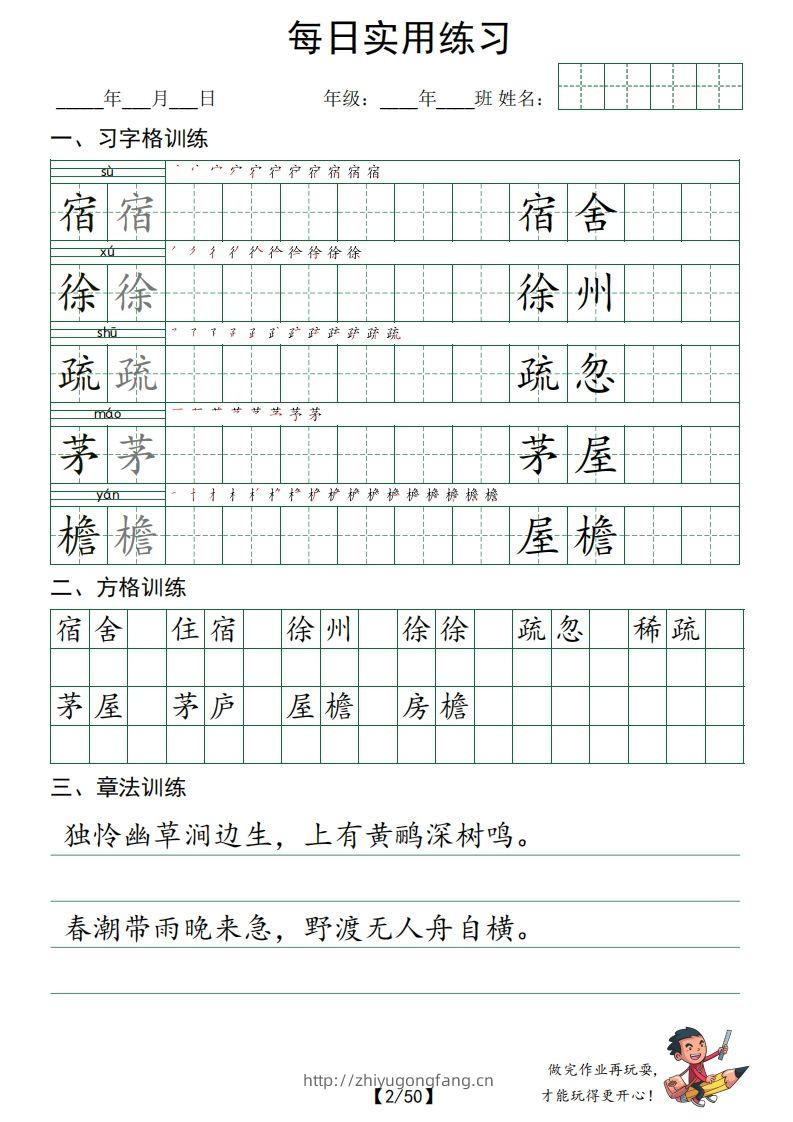 每日实用练习
_____年___月___日 年级：____年____班 姓名：
一、习字格训练
sù
宿 宿 宿 舍
xú
徐 徐 徐 州
shū
疏 疏 疏 忽
máo
茅 茅 茅 屋
yán
檐 檐 屋 檐
二、方格训练
宿 舍 住 宿 徐 州 徐 徐 疏 忽 稀 疏
茅 屋 茅 庐 屋 檐 房 檐
三、章法训练
独怜幽草涧边生，上有黄鹂深树鸣。
春潮带雨晚来急，野渡无人舟自横。
做完作业再玩耍，
才能玩得更开心！
http://zhiyugongfang.cn
【2/50】